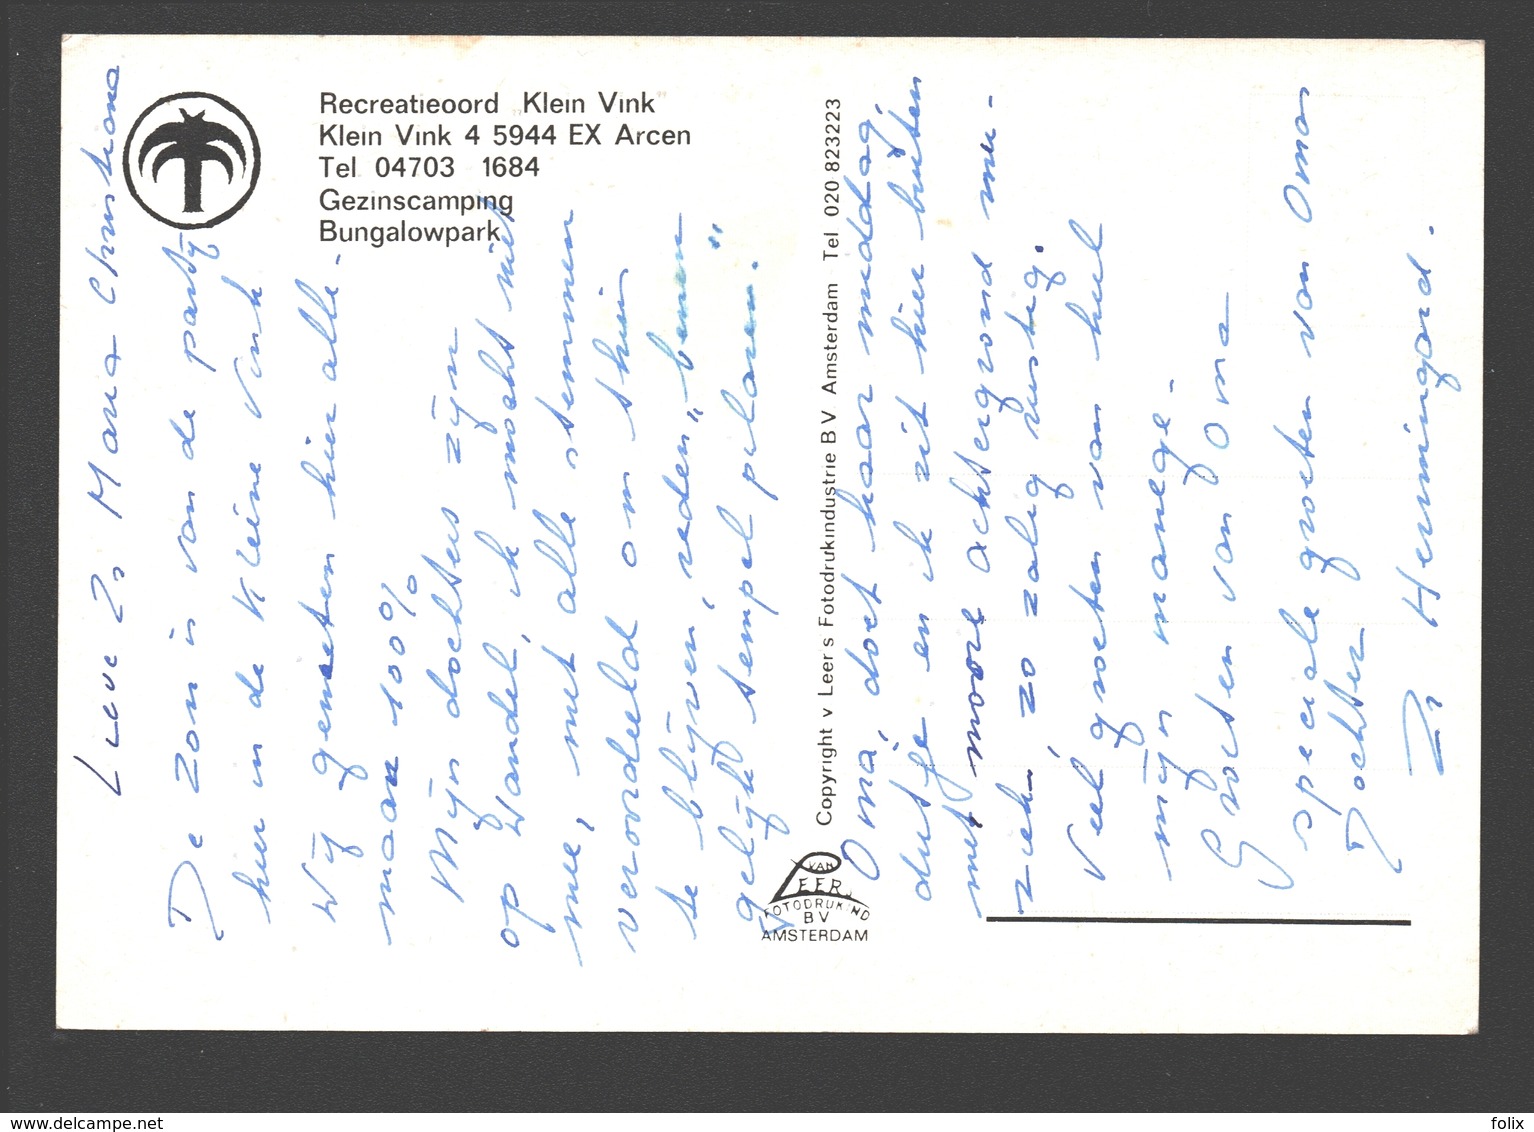 Recreatieoord „Klein Vink"
Klein Vink 4 5944 EX Arcen
Tel 04703 1684
Gezinscamping
Bungalowpark
Lieve Zr Maria Christiana
De zon is van de partij
hier in de Kleine Vink
Wij genieten hier alle-
maal 100%
Mijn dochters zijn
op wandel, ik mocht niet
mee, met alle stemmen
veroordeeld om thuis
te blijven, reden „benen"
gelijk tempel pilaren."
Oma, doet haar middag,
dutje en ik zit hier buiten
met, mooie achtergrond mu-
ziek, zo zalig rustig.
Veel groeten van heel
mijn manege-
Groeten van Oma
speciale groeten van Omas
Dochter
Zr Hermingard.
Copyright v Leer s Fotodrukindustrie B V Amsterdam Tel 020 823223
VAN
LEER
FOTODRUKIND
BV
AMSTERDAM
delcampe.net
folix